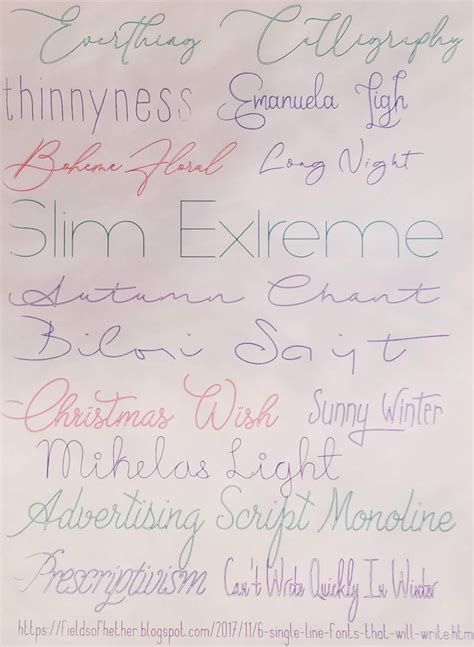 Everthing Calligraphy
thinnyness Emanuela Ligh
Boheme Floral Long Night
Slim Exlreme
Autumn Chant
Bilori Script
Christmas Wish Sunny Winter
Mikelas Light
Advertising Script Monoline
Prescriptivism Can't Write Quickly In Winter
https://fieldsofhether.blogspot.com/2017/11/6-single-line-fonts-that-will-write.htm